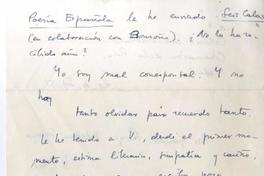 Poesía Española le he enviado "Seis Calas"
(en colaboración con Bousoño). ¿No la ha re-
cibido aún?
Yo soy mal corresponsal: Y no
hay
tanto olvidar para recuerdo tanto,
le he tenido a V., desde el primer mo-
mento, estima literaria, simpatía y cariño,